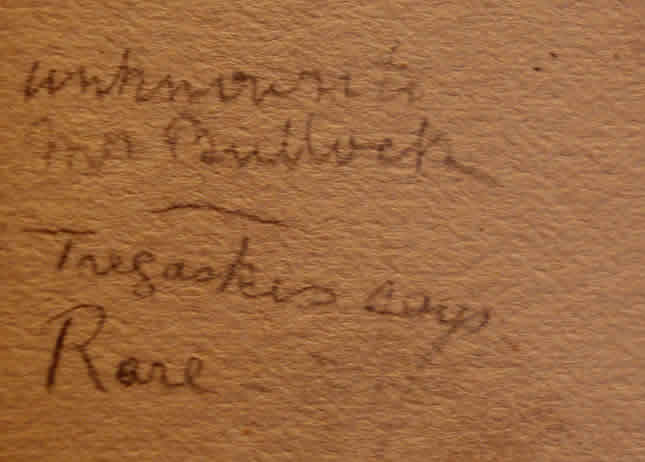 unknown to
Mr Bullock
Tregaskis says
Rare